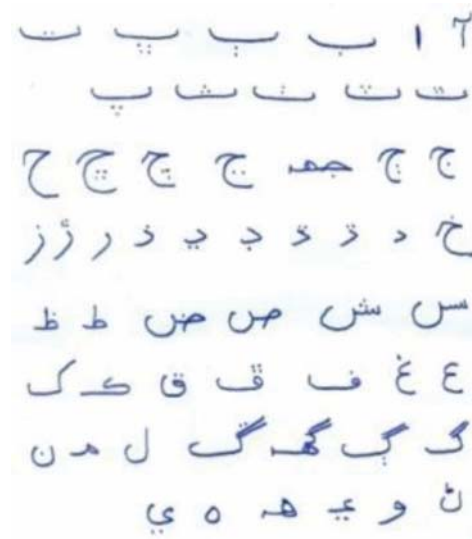 آ ا ب ٻ ڀ ت
ٿ ٽ ٺ ث پ
ج ڄ جهہ ڃ چ ڇ ح
خ د ڌ ڏ ڊ ڍ ذ ر ڙ ز
س ش ص ض ط ظ
ع غ ف ڦ ق ڪ ک
گ ڳ گهہ ڱ ل م ن
ڻ و هہ ه ي